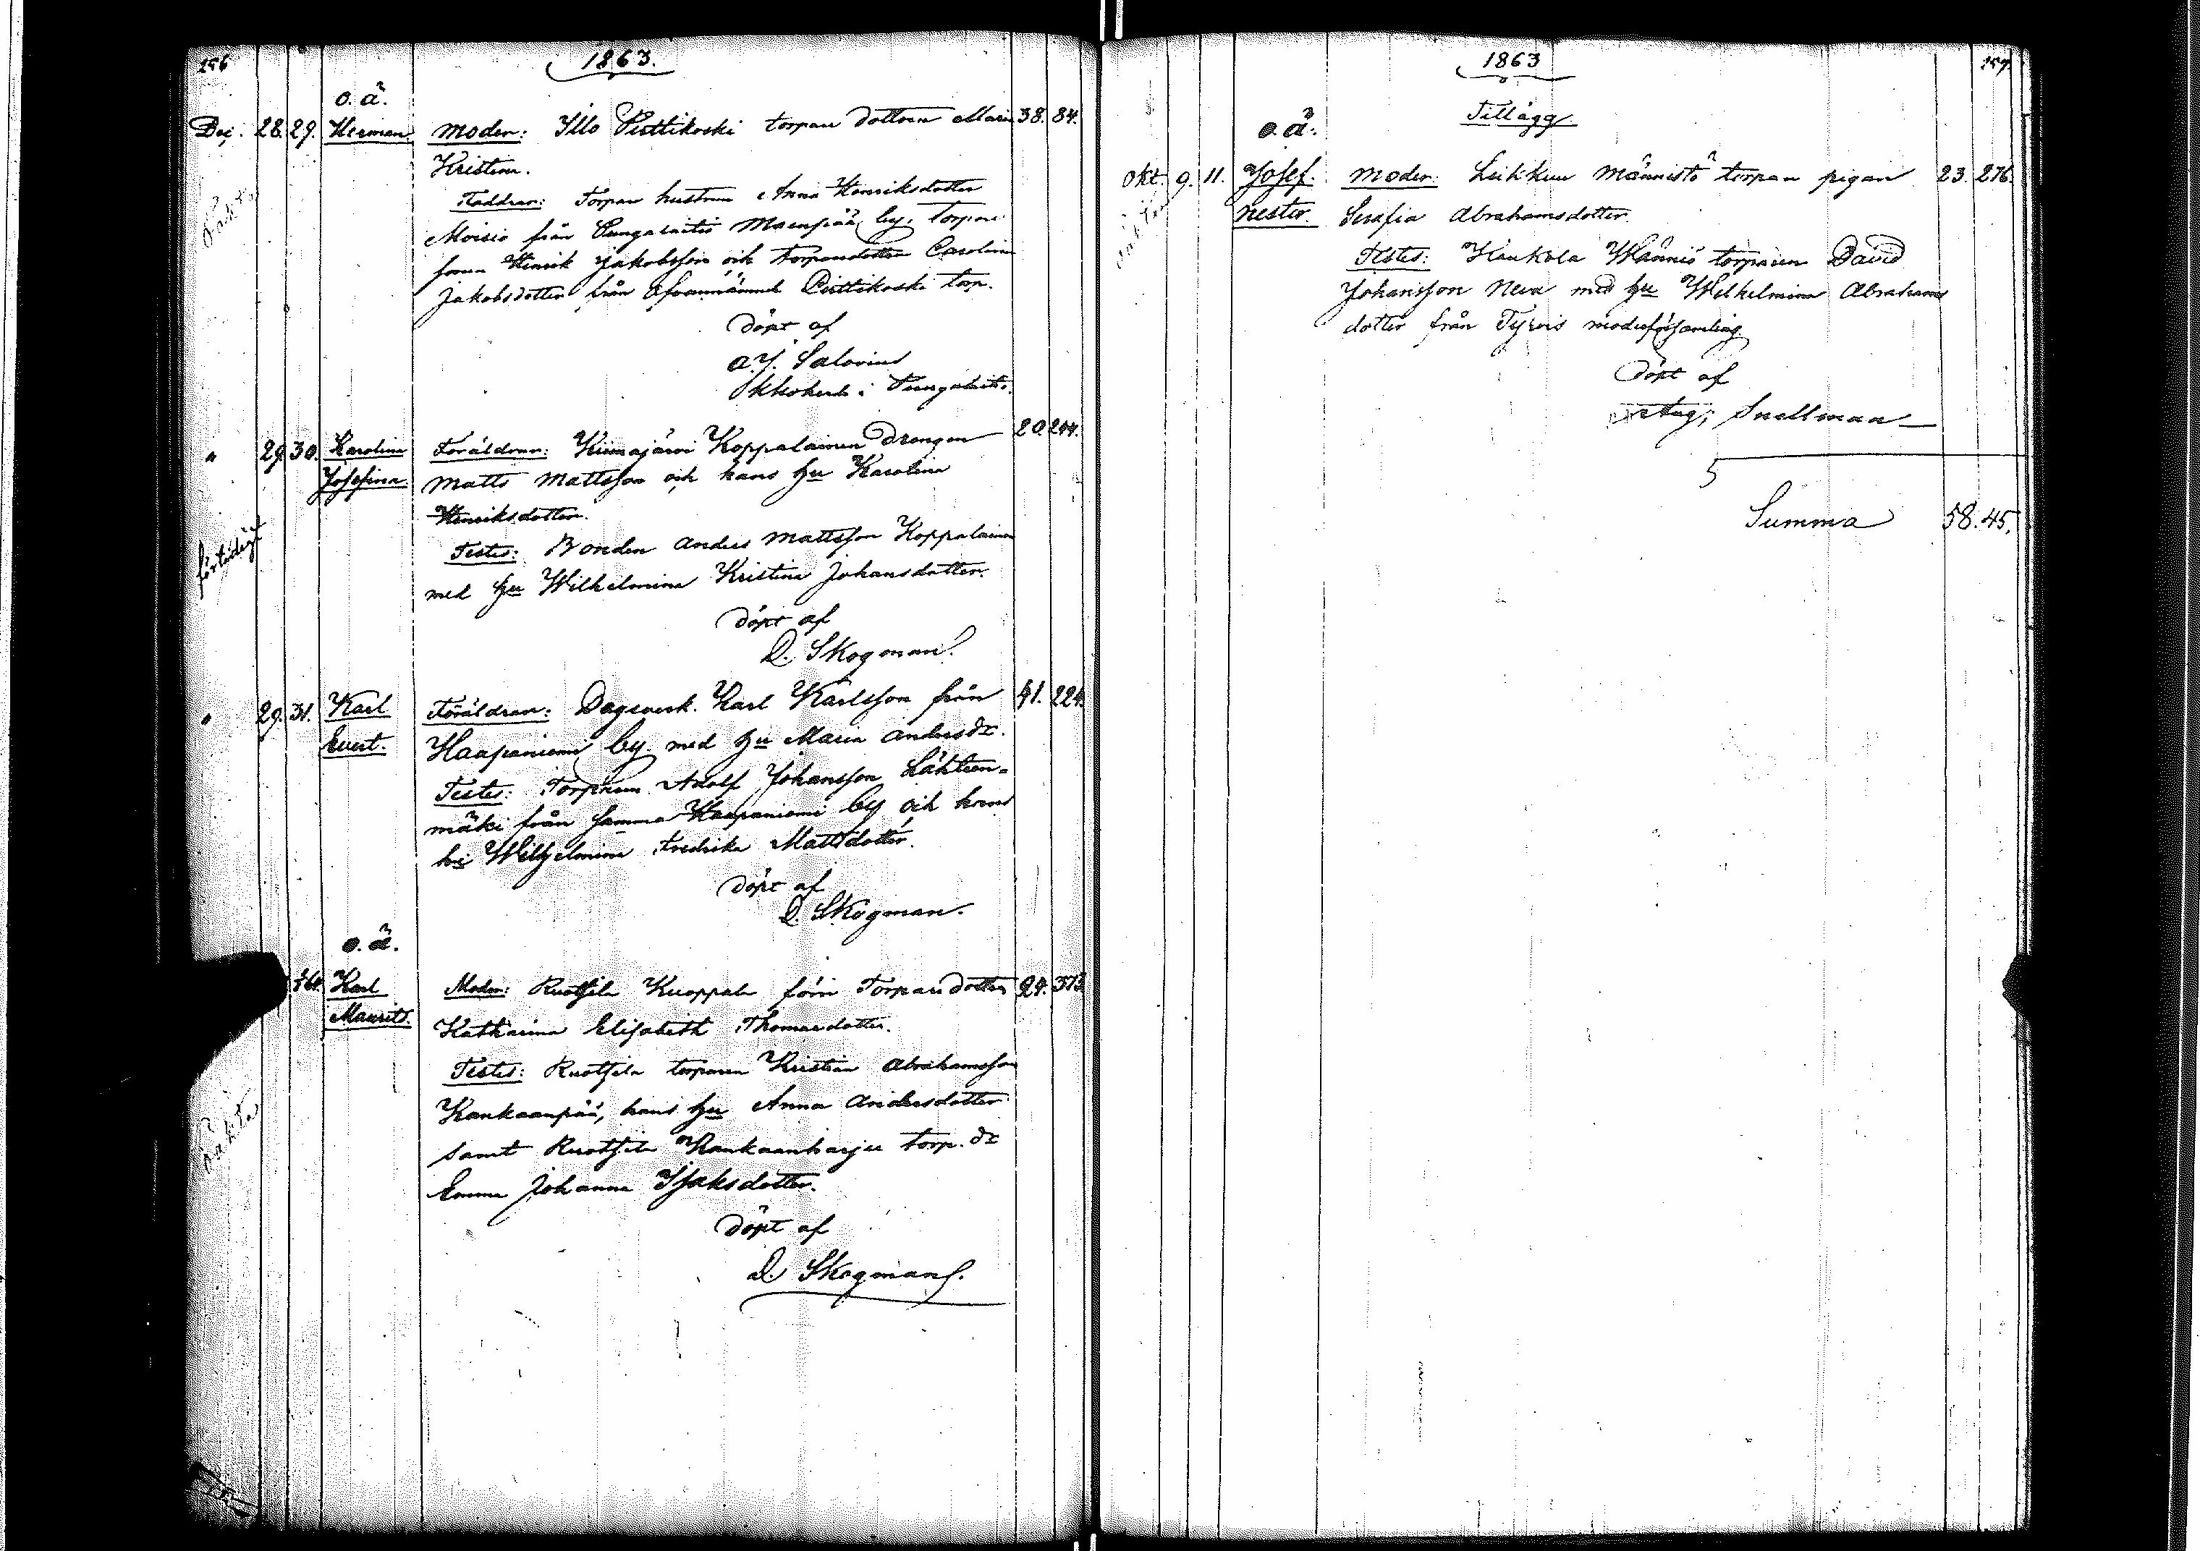 156
1863.
o. ä.
Dec. 28. 29. Herman. Moder: Illo Perttikoski torpare dottren Maria 38. 84.
Kristina.
Faddrar: Torpar hustrun Anna Henriksdotter
Moisio från Pungalaitio Maenpää by, Torpare
sonen Henrik Jakobsson och torparedottren Carolina
Jakobsdotter från ofvannämnde Perttikoski torp.
Döpt af
A. J. Salovius
i Pungalaitio.
" 29. 30. Karolina Föräldrar: Kiimajärvi Koppalainen Drengen 20. 244.
Josefina. Matts Mattsson och hans hu Karolina
Henriksdotter.
Testes: Bonden Anders Mattsson Koppalainen
med hu Wilhelmina Kristina Johansdotter.
Döpt af
D. Skogman.
" 29. 31. Karl Föräldrar: Dagsverk. Karl Karlsson från 41. 224.
Evert. Haapaniemi by med hu Maria Andersdr.
Testes: Torparen Adolf Johansson Lähteen-
mäki från samma Haapaniemi by och hans
hu Wilhelmina Fredrika Mattsdotter.
Döpt af
D. Skogman.
o. ä.
Karl Moder: Ruotsila Kuoppala förra Torparedotter 24. 373
Maurits. Katharina Elisabeth Thomasdotter.
Testes: Ruotsila torparen Kristian Abrahamsson
Kankaanpää, hans hu Anna Andersdotter
samt Ruotsila Kankaanharju torp. dr
Emma Johanna Isaksdotter.
Döpt af
D. Skogman.
1863
157.
Tillägg
o. ä.
Okt. 9. 11. Josef Moder: Leikkuu Männistö torpan pigan 23. 276.
Nestor. Serafia Abrahamsdotter
Testes: Haukola Männistö torparen David
Johansson Neva med hu Wilhelmina Abrahams
dotter från Tyrvis moderförsamling.
Döpt af
Aug. Snellman
Summa 58. 45.